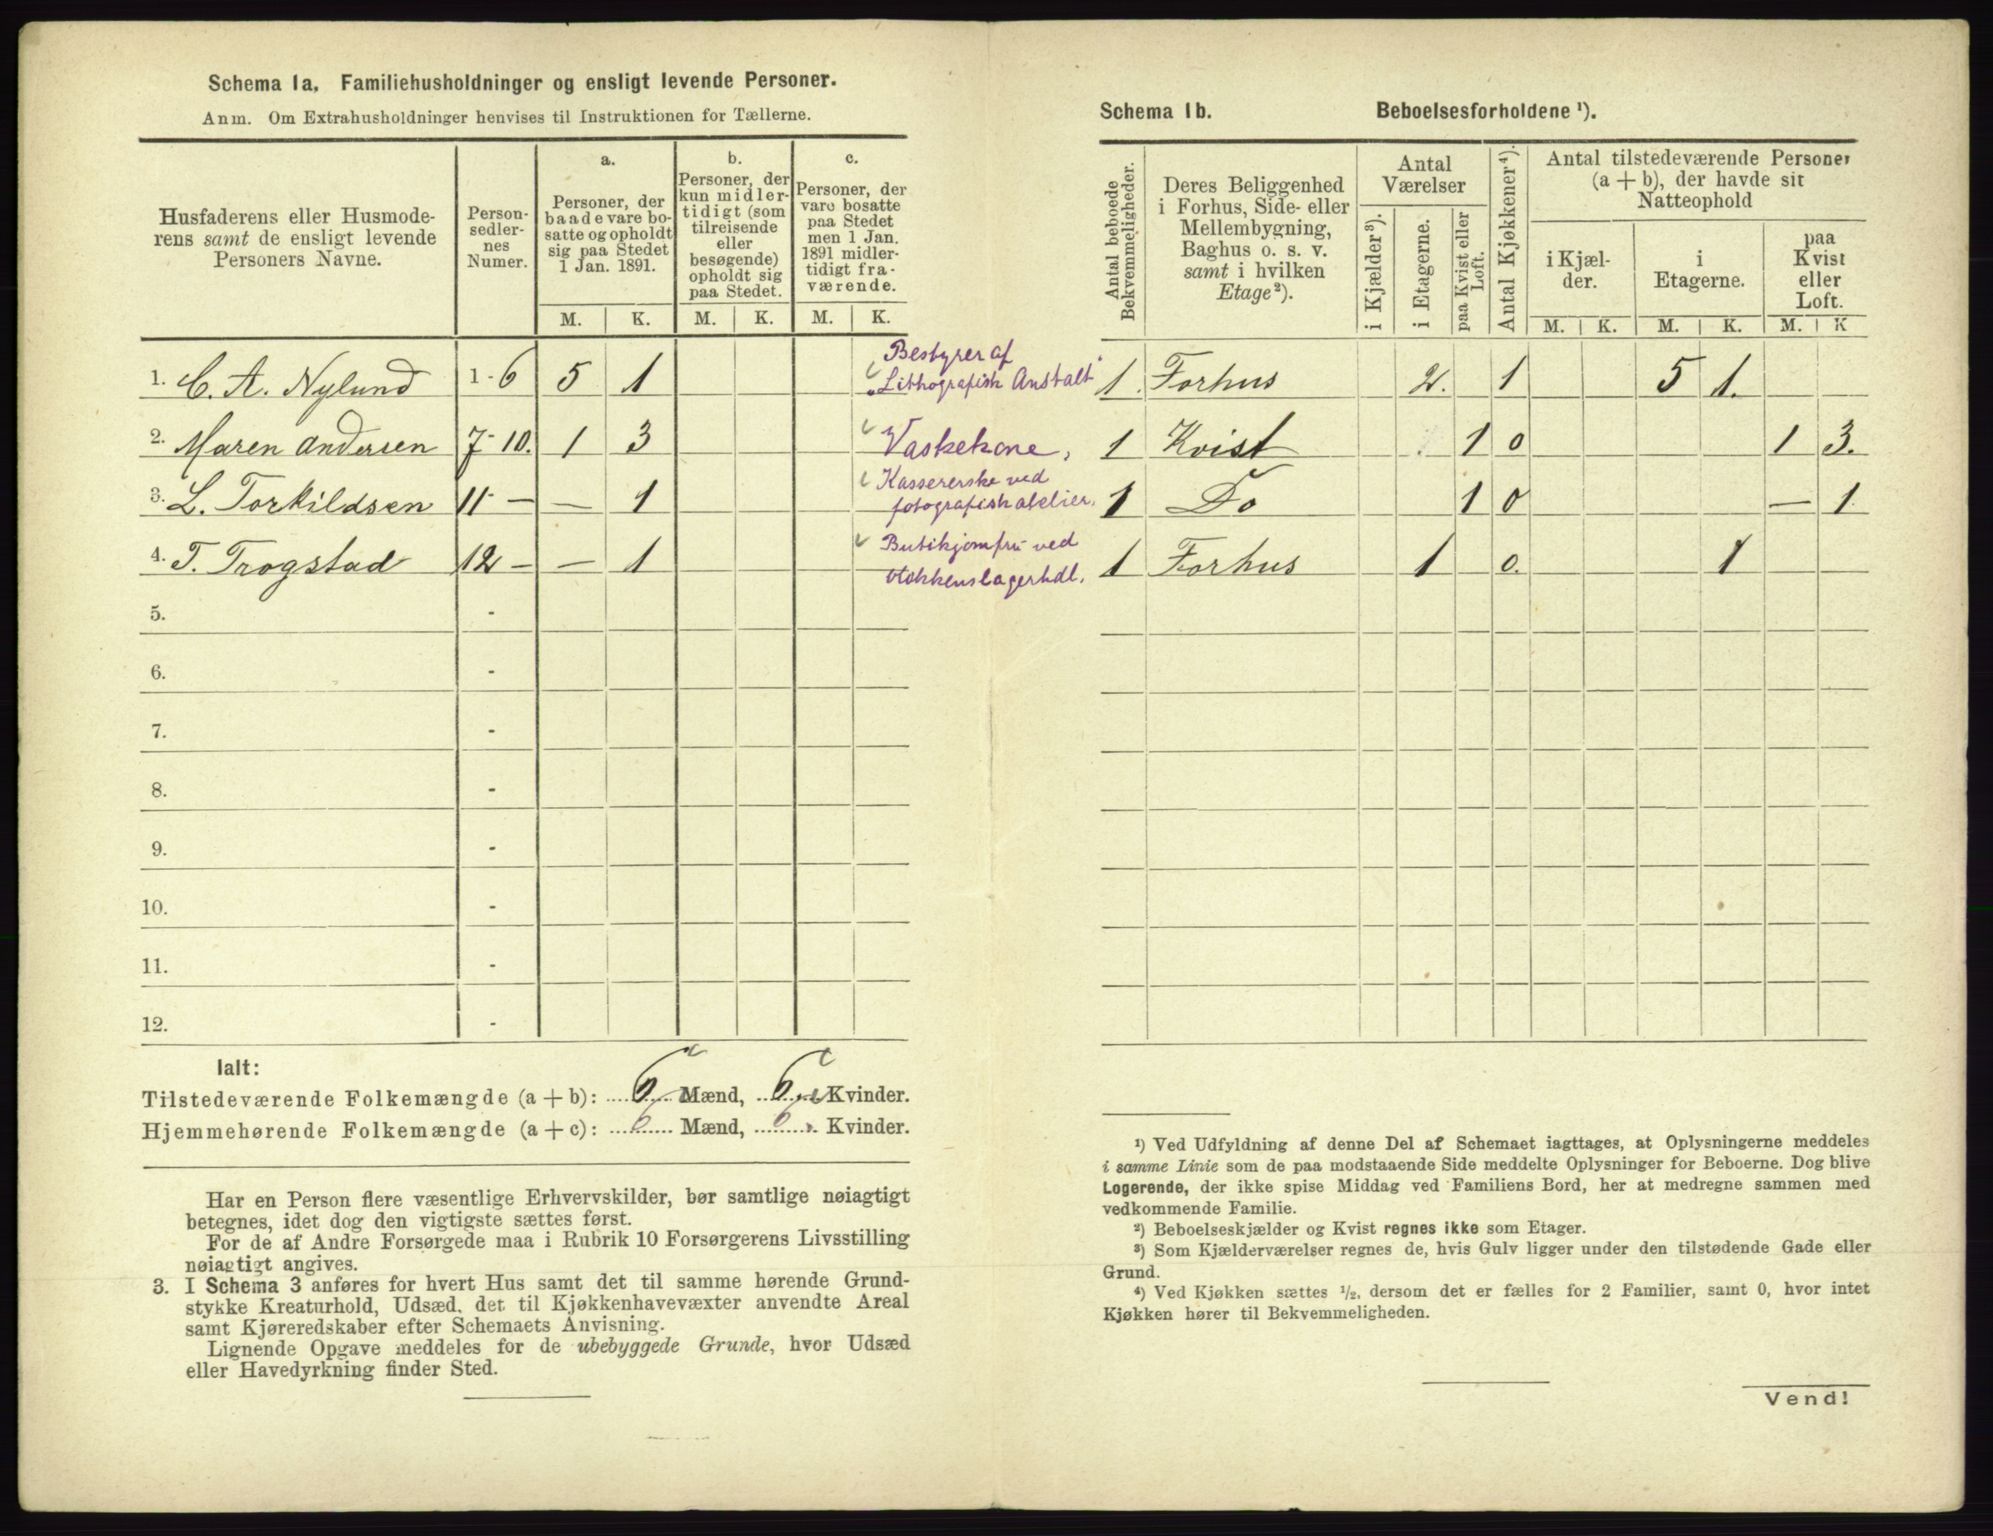 Schema 1a, Familiehusholdninger og ensligt levende Personer.
Anm. Om Extrahusholdninger henvises til Instruktionen for Tællerne.
Husfaderens eller Husmode-
rens samt de ensligt levende
Personers Navne.
Person-
sedler-
nes
Numer.
a.
Personer, der
baade vare bo-
satte og opholdt
sig paa Stedet
1 Jan. 1891.
b.
Personer, der
kun midler-
tidigt (som
tilreisende
eller
besøgende)
opholdt sig
paa Stedet.
c.
Personer, der
vare bosatte
paa Stedet
men 1 Jan.
1891 midler-
tidigt fra-
værende.
M. K. M. K. M. K.
1. C. A. Nylund 1-6 5 1 Bestyrer af
„Lithografisk Anstalt"
2. Maren Andersen 7-10. 1 3 Vaskekone,
3. L. Torkildsen 11 - — 1 Kassererske ved
fotografisk atelier.
4. T. Trogstad 12 - — 1 Butikjomfru ved
Stokkenslagerhdl.
5. -
6. -
7. -
8. -
9. -
10. -
11. -
12. -
Ialt:
Tilstedeværende Folkemængde (a + b): 6 Mænd, 6 Kvinder.
Hjemmehørende Folkemængde (a + c): 6 Mænd, 6 Kvinder.
Har en Person flere væsentlige Erhvervskilder, bør samtlige nøiagtigt
betegnes, idet dog den vigtigste sættes først.
For de af Andre Forsørgede maa i Rubrik 10 Forsørgerens Livsstilling
nøiagtigt angives.
3. I Schema 3 anføres for hvert Hus samt det til samme hørende Grund-
stykke Kreaturhold, Udsæd, det til Kjøkkenhavevæxter anvendte Areal
samt Kjøreredskaber efter Schemaets Anvisning.
Lignende Opgave meddeles for de ubebyggede Grunde, hvor Udsæd
eller Havedyrkning finder Sted.
Schema 1b. Beboelsesforholdene ¹).
Antal beboede
Bekvemmeligheder.
Deres Beliggenhed
i Forhus, Side- eller
Mellembygning,
Baghus o. s. v.
samt i hvilken
Etage²).
Antal
Værelser
i Kjælder³).
i Etagerne.
paa Kvist eller
Loft.
Antal Kjøkkener⁴).
Antal tilstedeværende Personer
(a + b), der havde sit
Natteophold
i Kjæl-
der.
i
Etagerne.
paa
Kvist
eller
Loft.
M. K. M. K. M. K
1. Forhus 2. 1 5 1.
1 Kvist 1 0 1 3.
1 Do 1 0 — 1.
1 Forhus 1 0. 1
¹) Ved Udfyldning af denne Del af Schemaet iagttages, at Oplysningerne meddeles
i samme Linie som de paa modstaaende Side meddelte Oplysninger for Beboerne. Dog blive
Logerende, der ikke spise Middag ved Familiens Bord, her at medregne sammen med
vedkommende Familie.
²) Beboelseskjælder og Kvist regnes ikke som Etager.
³) Som Kjælderværelser regnes de, hvis Gulv ligger under den tilstødende Gade eller
Grund.
⁴) Ved Kjøkken sættes ½, dersom det er fælles for 2 Familier, samt 0, hvor intet
Kjøkken hører til Bekvemmeligheden.
Vend!